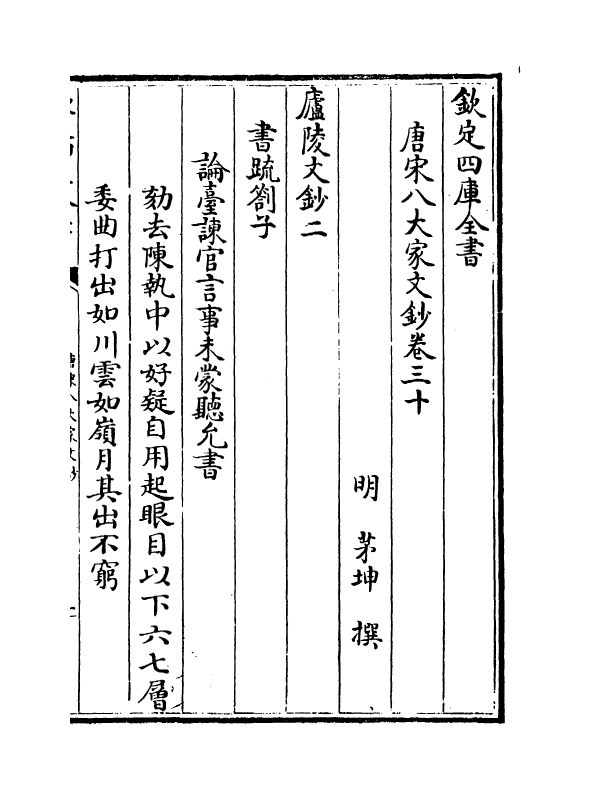 欽定四庫全書
唐宋八大家文鈔卷三十
明 茅坤 撰
廬陵文鈔二
書疏劄子
論臺諫官言事未蒙聽允書
劾去陳執中以好疑自用起眼目以下六七層
委曲打出如川雲如嶺月其出不窮
唐宋八大家文鈔